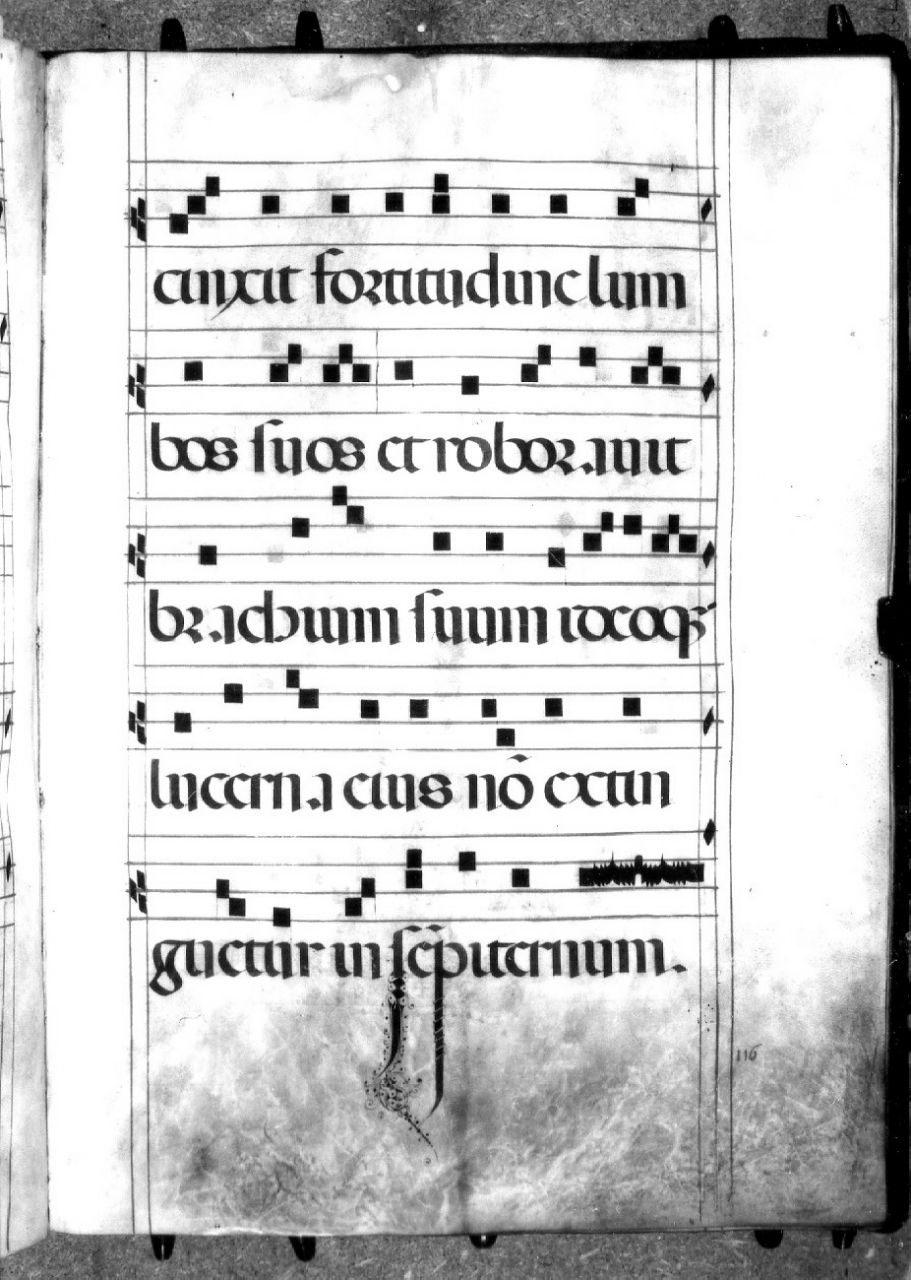 cinxit fortitudine lum
bos suos et roborauit
brachium suum ideoqꝫ
lucerna eius nō extin
guetur in sēpiternum.
116